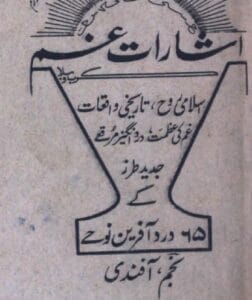 اشارات غم
اسلامی روح، تاریخی واقعات
غم کی عظمت، درد انگیز مرقعے
جدید طرز
کے
۶۵ درد آفرین نوحے
نجم، آفندی